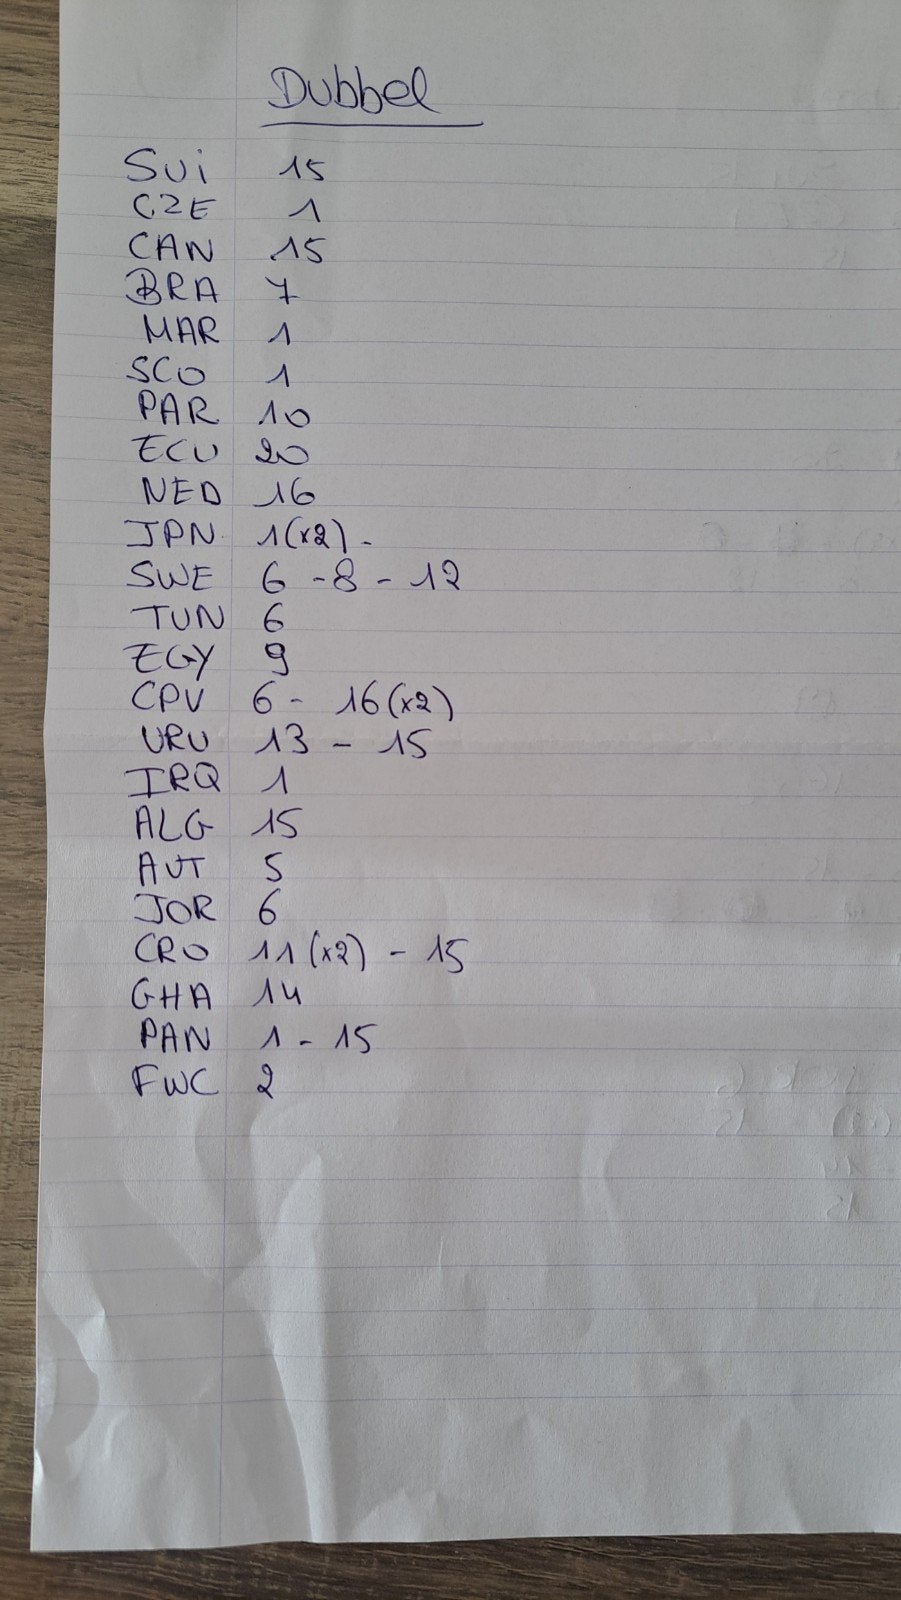 Dubbel
SUi 15
CZE 1
CAN 15
BRA 7
MAR 1
SCO 1
PAR 10
ECU 20
NED 16
JPN 1(x2) -
SWE 6 - 8 - 12
TUN 6
EGY 9
CPV 6 - 16(x2)
URU 13 - 15
IRQ 1
ALG 15
AUT 5
JOR 6
CRO 11(x2) - 15
GHA 14
PAN 1 - 15
FWC 2